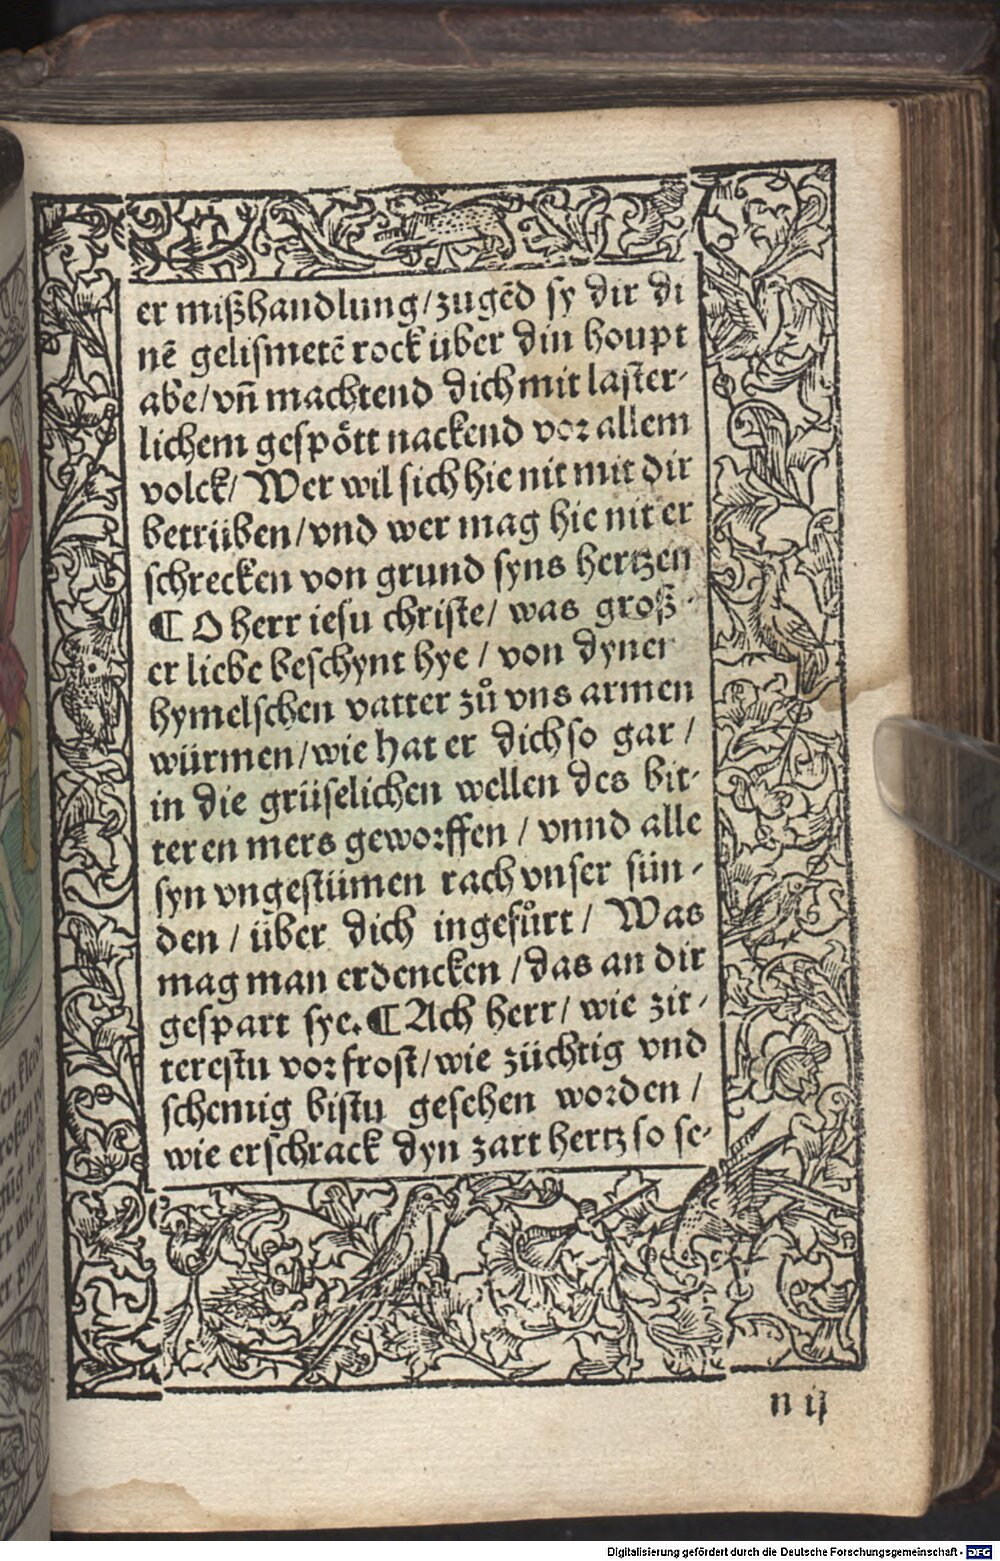 er mißhandlung/zugēd sy dir di
nē gelismetē rock über din houpt
abe/vn̄ machtend dich mit laster-
lichem gespoͤtt nackend vor allem
volck/ Wer wil sich hie nit mit dir
betrüben/vnd wer mag hie nit er
schrecken von grund syns hertzen
¶ O herr iesu christe/ was groß
er liebe beschynt hye / von dyner
hymelschen vatter zů vns armen
würmen/wie hat er dich so gar /
in die grüselichen wellen des bit-
teren mers geworffen / vnnd alle
syn vngestümen rach vnser sün-
den / über dich ingefůrt / Was
mag man erdencken /das an dir
gespart sye. ¶ Ach herr/ wie zit-
terestu vor frost/wie züchtig vnd
schemig bistu gesehen worden /
wie erschrack dyn zart hertz so se-
n ij
Digitalisierung gefördert durch die Deutsche Forschungsgemeinschaft - DFG